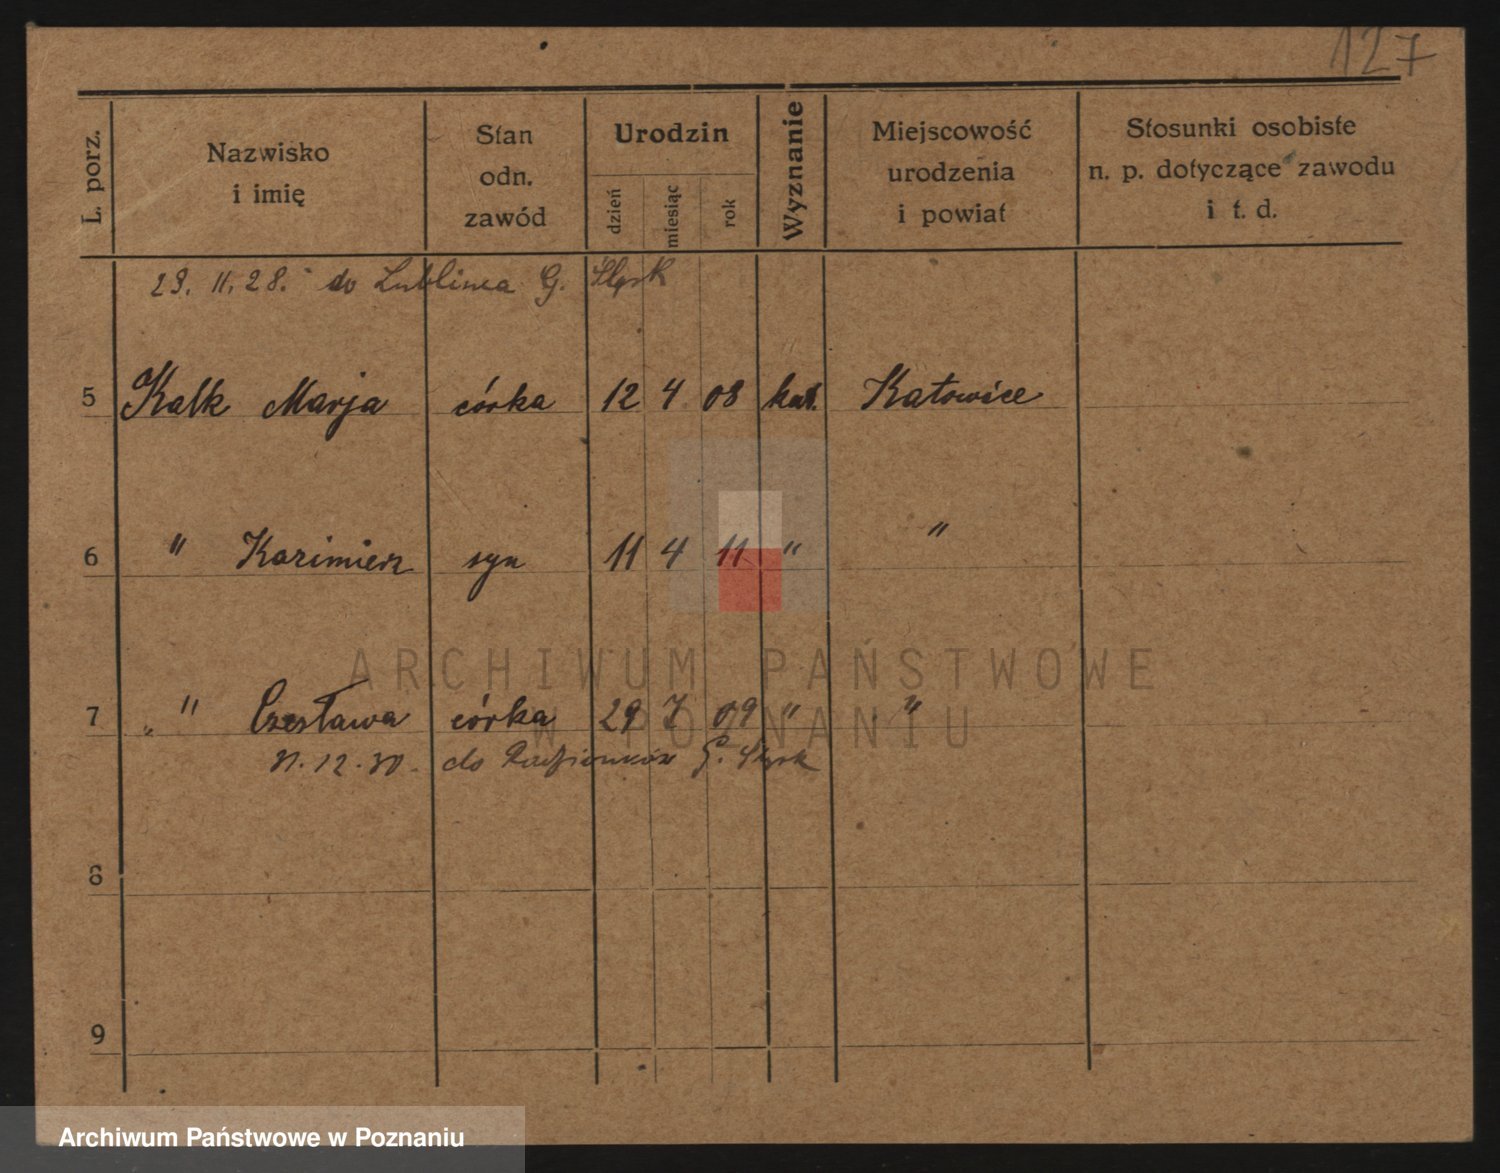 127
L. porz.
Nazwisko
i imię
Stan
odn.
zawód
Urodzin
dzień
miesiąc
rok
Wyznanie
Miejscowość
urodzenia
i powiat
Stosunki osobiste
n. p. dotyczące zawodu
i t. d.
29. 11. 28. do Lublinca G. Śląsk
5 Kalk Marja córka 12 4 08 kat. Katowice
6 " Kazimierz syn 11 4 11 " "
7 " Czesława córka 29 7 09 " "
31. 12. 30. do Radzionków G. Śląsk
8
9
ARCHIWUM PAŃSTWOWE
W POZNANIU
Archiwum Państwowe w Poznaniu